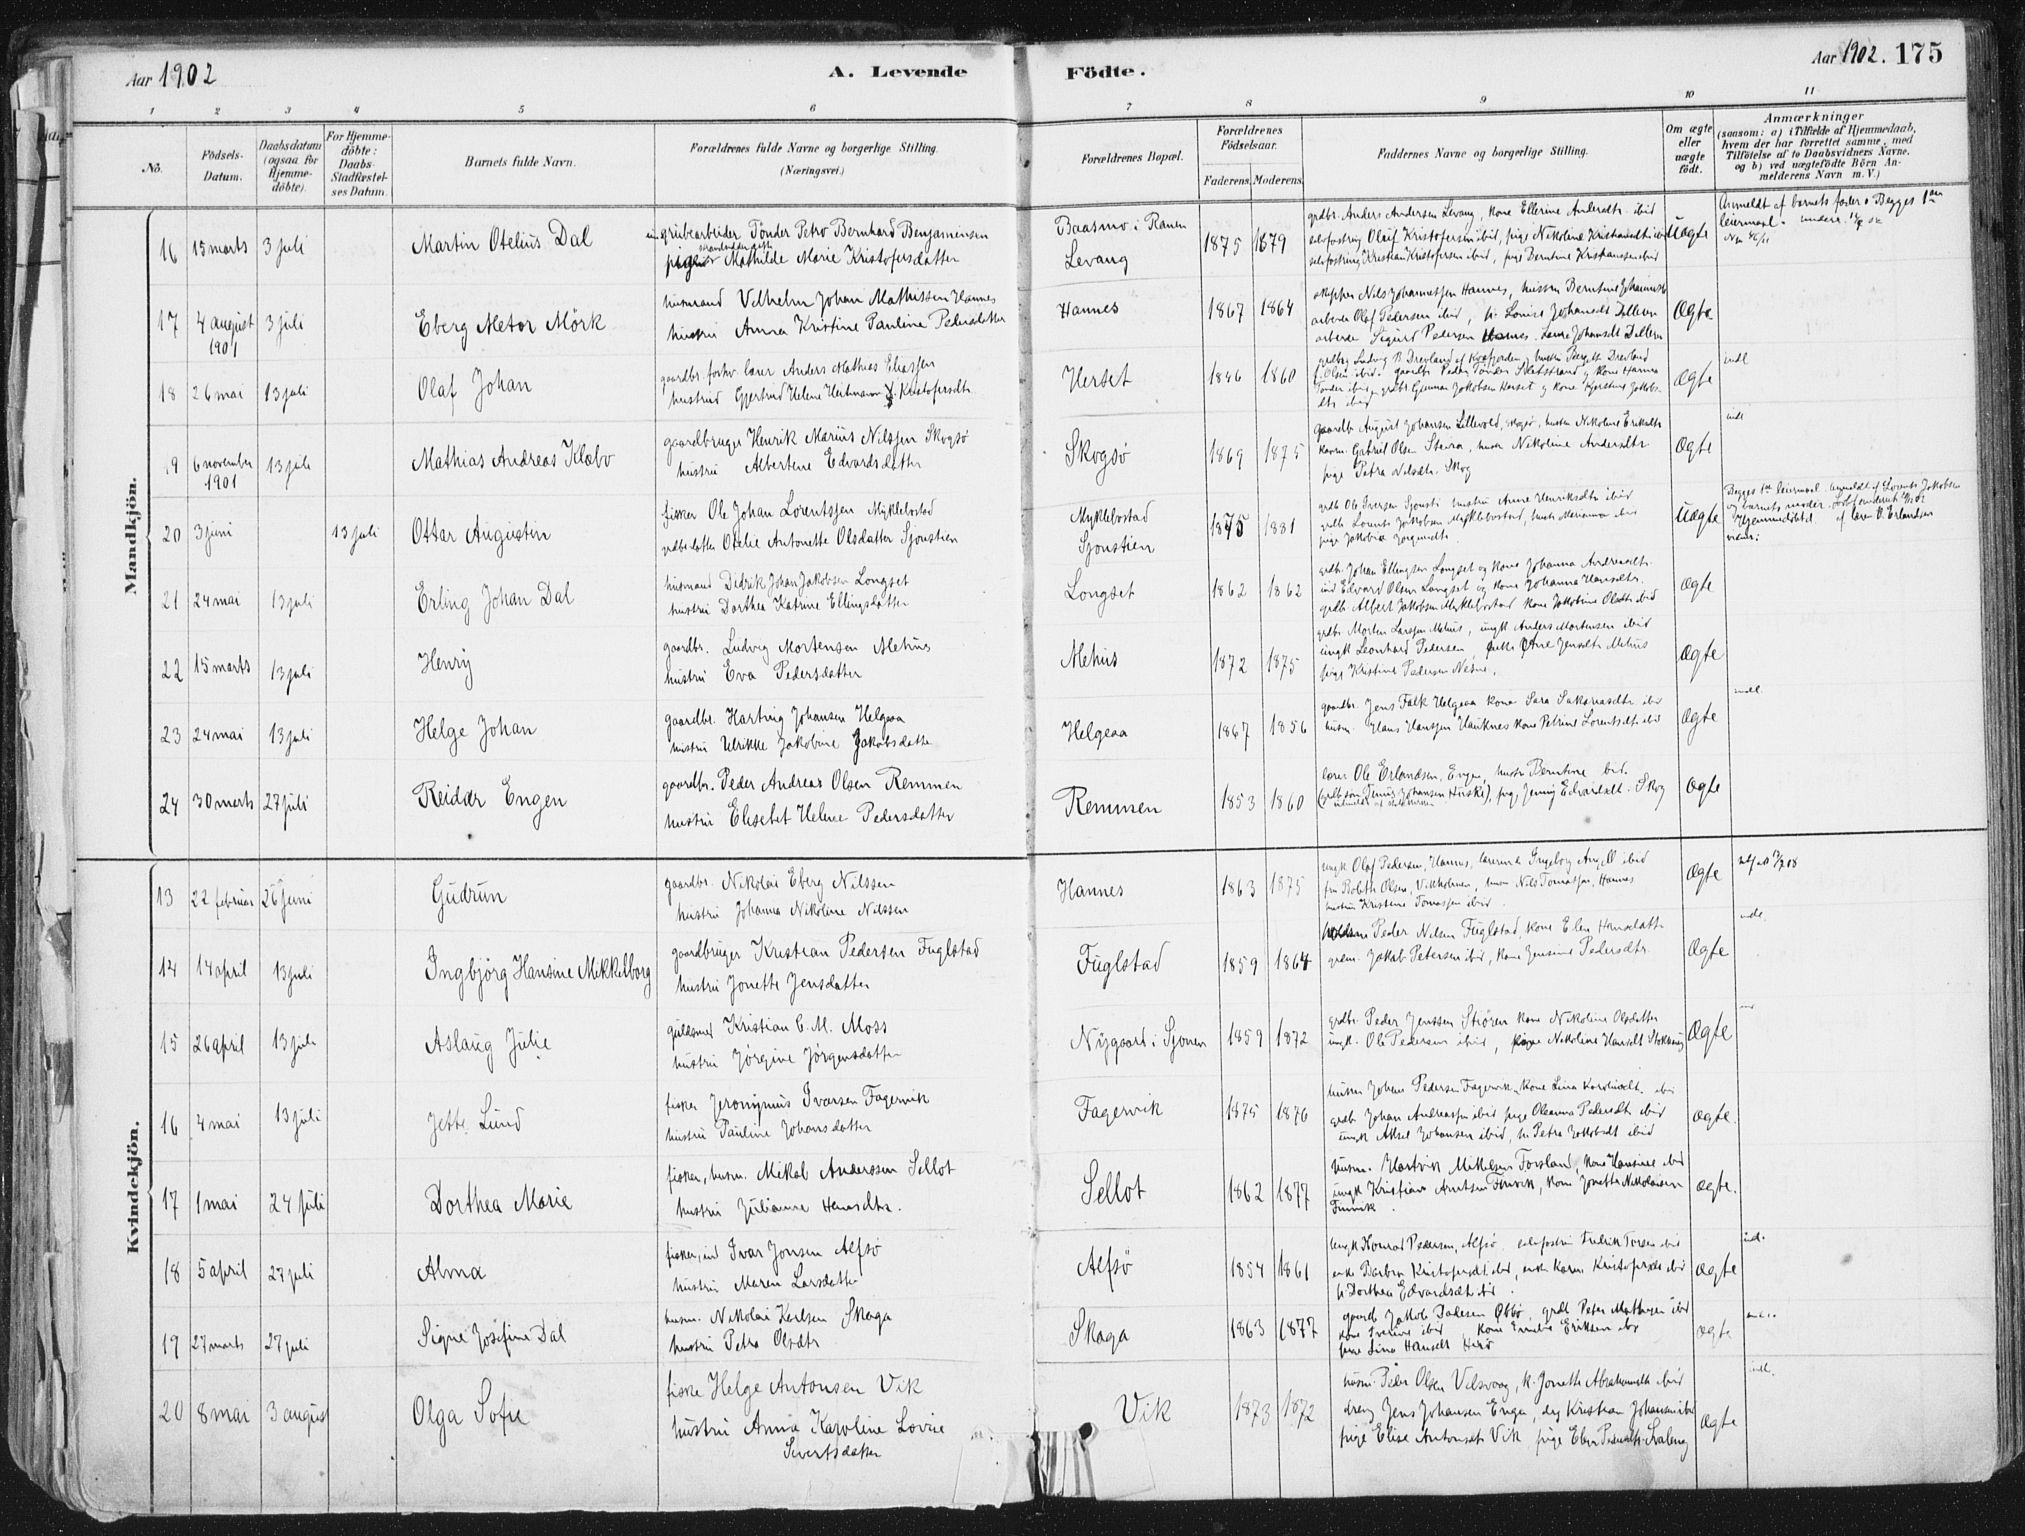 Aar 1902
A. Levende
Födte.
Aar 1902. 175
1 2 3 4 5 6 7 8 9 10 11
No.
Födsels-Datum.
Daabsdatum (ogsaa for Hjemme-döbte).
For Hjemme-döbte: Daabs-Stadfæstel-ses Datum.
Barnets fulde Navn.
Forældrenes fulde Navne og borgerlige Stilling.
(Næringsvei.)
Forældrenes Bopæl.
Forældrenes Födselsaar.
Faderens. Moderens.
Faddernes Navne og borgerlige Stilling.
Om ægte eller uægte födt.
Anmærkninger
(saasom: a) i Tilfælde af Hjemmedaab,
hvem der har forrettet samme, med
Tilföielse af to Daabsvidners Navne,
og b) ved uægtefödte Börn An-
melderens Navn m. V.)
Mandkjön.
16 15 marts 3 juli Martin Otelius Dal
grubearbeider Tönder Petro Bernhard Benjaminsen
pige Mathilde Marie Kristofersdatter
Baasmo i Ranen
Levang
1875 1879
grdbr. Anders Andersen Levang, kone Ellerine Andersdtr. ibid
Olaif Kristofersen ibid, pige Nikoline
Kristian Kristofersen ibid, pige Berntine Kristiansen ibid
Uægte
Anmeldt af barnets fader. Begges 1ste
leiermaal.
17 4 august 1901 3 juli Eberg Metor Mörk
husmand Vilhelm Johan Mathissen Hannes
hustru Anna Kristine Pauline Pedersdatter
Hannes
1867 1864
skipper Nils Johannessen Hannes, hustru Berntine
arbeider Olaf Pedersen ibid,
arbeider Sigurd Pedersen Hannes.
Ægte
18 26 mai 13 juli Olaf Johan
gaardbr. forhv. lærer Anders Mathias Eliassen
hustru Gjertrud Helene Heitmann f. Kristofersdtr.
Herset
1846 1860
Ægte
indl
19 6 november 1901 13 juli Mathias Andreas Klæbo
gaardbruger Henrik Marius Nilssen Skogsö
hustru Albertine Edvardsdatter
Skogsö
1869 1875
gaardbr August Johansen Lillevold, Skogsö, hustru Nikoline
Gabriel Olsen Steira, hustru Nikoline Andersdtr
pige Petra Nilsdtr. Skog
Ægte
indl
20 3 juni 13 juli Ottar Augustin
fisker Ole Johan Lorentssen Myklebostad
Otelie Antonette Olsdatter Sjonstien
Myklebostad
Sjonstien
1875 1881
grdb Ole Iversen Sjonsti hustru Anne Henriksdtr ibid
grdb. Lorents Jakobsen Myklebostad, hustru Marianna ibid
Uægte
Begges 1ste leiermaal. Anmeldt af Lorents Jakobsen
og barnets moder.
Hjemmedöbt af lærer O. Erlandsen
21 24 mai 13 juli Erling Johan Dal
husmand Didrik Johan Jakobsen Longset
hustru Dorthea Katrine Ellingsdatter
Longset
1862 1862
grdb. Johan Ellingsen Longset og kone Johanna Andreasdtr.
ind Edvard Olsen Longset og kone Johanna Hansdtr.
grdb Albert Jakobsen Myklebostad kone Jakobine Olsdtr ibid
ægte
22 15 marts 13 juli Henry
gaardbr. Ludvig Mortensen Mehus
hustru Eva Pedersdatter
Mehus
1872 1875
grdbr Morten Larssen Mehus, ungk Anders Mortensen ibid
ungk Leonhard Pedersen, Jensdtr Mehus
pige Kristine Pedersen Nesne.
Ægte
23 24 mai 13 juli Helge Johan
gaardbr. Hartvig Johansen Helgeaa
hustru Ulrikke Jakobine Jakobsdatter
Helgeaa
1867 1856
gaardbr. Jens Falk Helgeaa kone Sara Sakariasdtr ibid
husm. Hans Hanssen Hauknes kone Petrine Lorentsdtr ibid
Ægte
indl.
24 30 marts 27 juli Reidar Engen
gaardbr. Peder Andreas Olsen Remmen
hustru Elisebet Helene Pedersdatter
Remmen
1853 1860
lærer Ole Erlandsen, Engen, hustru Berntine ibid.
pige Jenny Edvardsdt. Skog
Ægte
Kvindekjön.
13 22 februar 26 juni Gudrun
gaardbr. Nikolai Eberg Nilssen
hustru Johanna Nikoline Nilssen
Hannes
1863 1875
ungk Olaf Pedersen, Hannes, lærerinde Ingeborg Angell ibid
Olsen, Vikholmen, Nils Tomassen, Hannes
hustru Kristine Tomassen ibid.
Ægte
14 14 april 13 juli Ingbjörg Hansine Mikkelborg
gaardbruger Kristian Pedersen Fuglstad
hustru Jonette Jensdatter
Fuglstad
1859 1864
Peder Nilsen Fuglstad, kone Elen Hansdatter
Jakob Petersen ibid, kone Jensine Pedersdtr.
Ægte
indl.
15 26 april 13 juli Aslaug Julie
guldsmed Kristian C. M. Moss
hustru Jörgine Jörgensdatter
Nygaard i Sjonen
1859 1872
grdbr. Peder Jenssen Strören kone Nikoline Olsdatter
ungk. Ole Pedersen ibid, pige Nikoline Hansdt
Ægte
16 4 mai 13 juli Jette Lund
fisker Jeronymus Ivarsen Fagervik
hustru Pauline Johansdatter
Fagervik
1875 1876
husm Johan Pedersen Fagervik kone Lina ibid
grdb. Johan Andreassen ibid pige Oleanna Pedersdtr ibid
ungk Aksel Johansen ibid, Petra Jakobsdt ibid
ægte.
17 1 mai 24 juli Dorthea Marie
fisker, husm. Mikal Anderssen Sellot
hustru Julianne Hansdtr.
Sellot
1862 1877
husm. Hartvik Mikkelsen Forsland, kone Hansine ibid
ungk Kristian Arntsen Finvik, kone Jonette Nikolaisen
Finvik.
ægte.
18 5 april 27 juli Alma
fisker, ind Ivar Jonsen Alfsö
hustru Maren Larsdatter
Alfsö
1854 1861
ungk Konrad Pedersen, Alfsö. Fredrik Torsen ibid
enke Barbra Kristofersdt ibid, enke Karen Kristofersdt ibid
Dorthea Edvardsdtr ibid.
ægte
ind.
19 27 marts 27 juli Signe Josefine Dal
husm. Nikolai Karlsen Skaga
hustru Petra Olsdtr
Skaga
1863 1877
gaardb Jakob Pedersen, grdb Peter Mathisen ibid
pige Lina Hansdt
ægte
20 8 mai 3 august Olga Sofie
fisker Helge Antonsen Vik
hustru Anna Karoline Lovise
Sivertsdatter
Vik
1873 1872
husm. Peder Olsen Valsvaag, k. Jonette Abrahamsdt ibid
dreng Jens Johansen Engen, dreng Kristian Johansen ibid
pige Elise Antonsdt Vik pige
Ægte
indl.